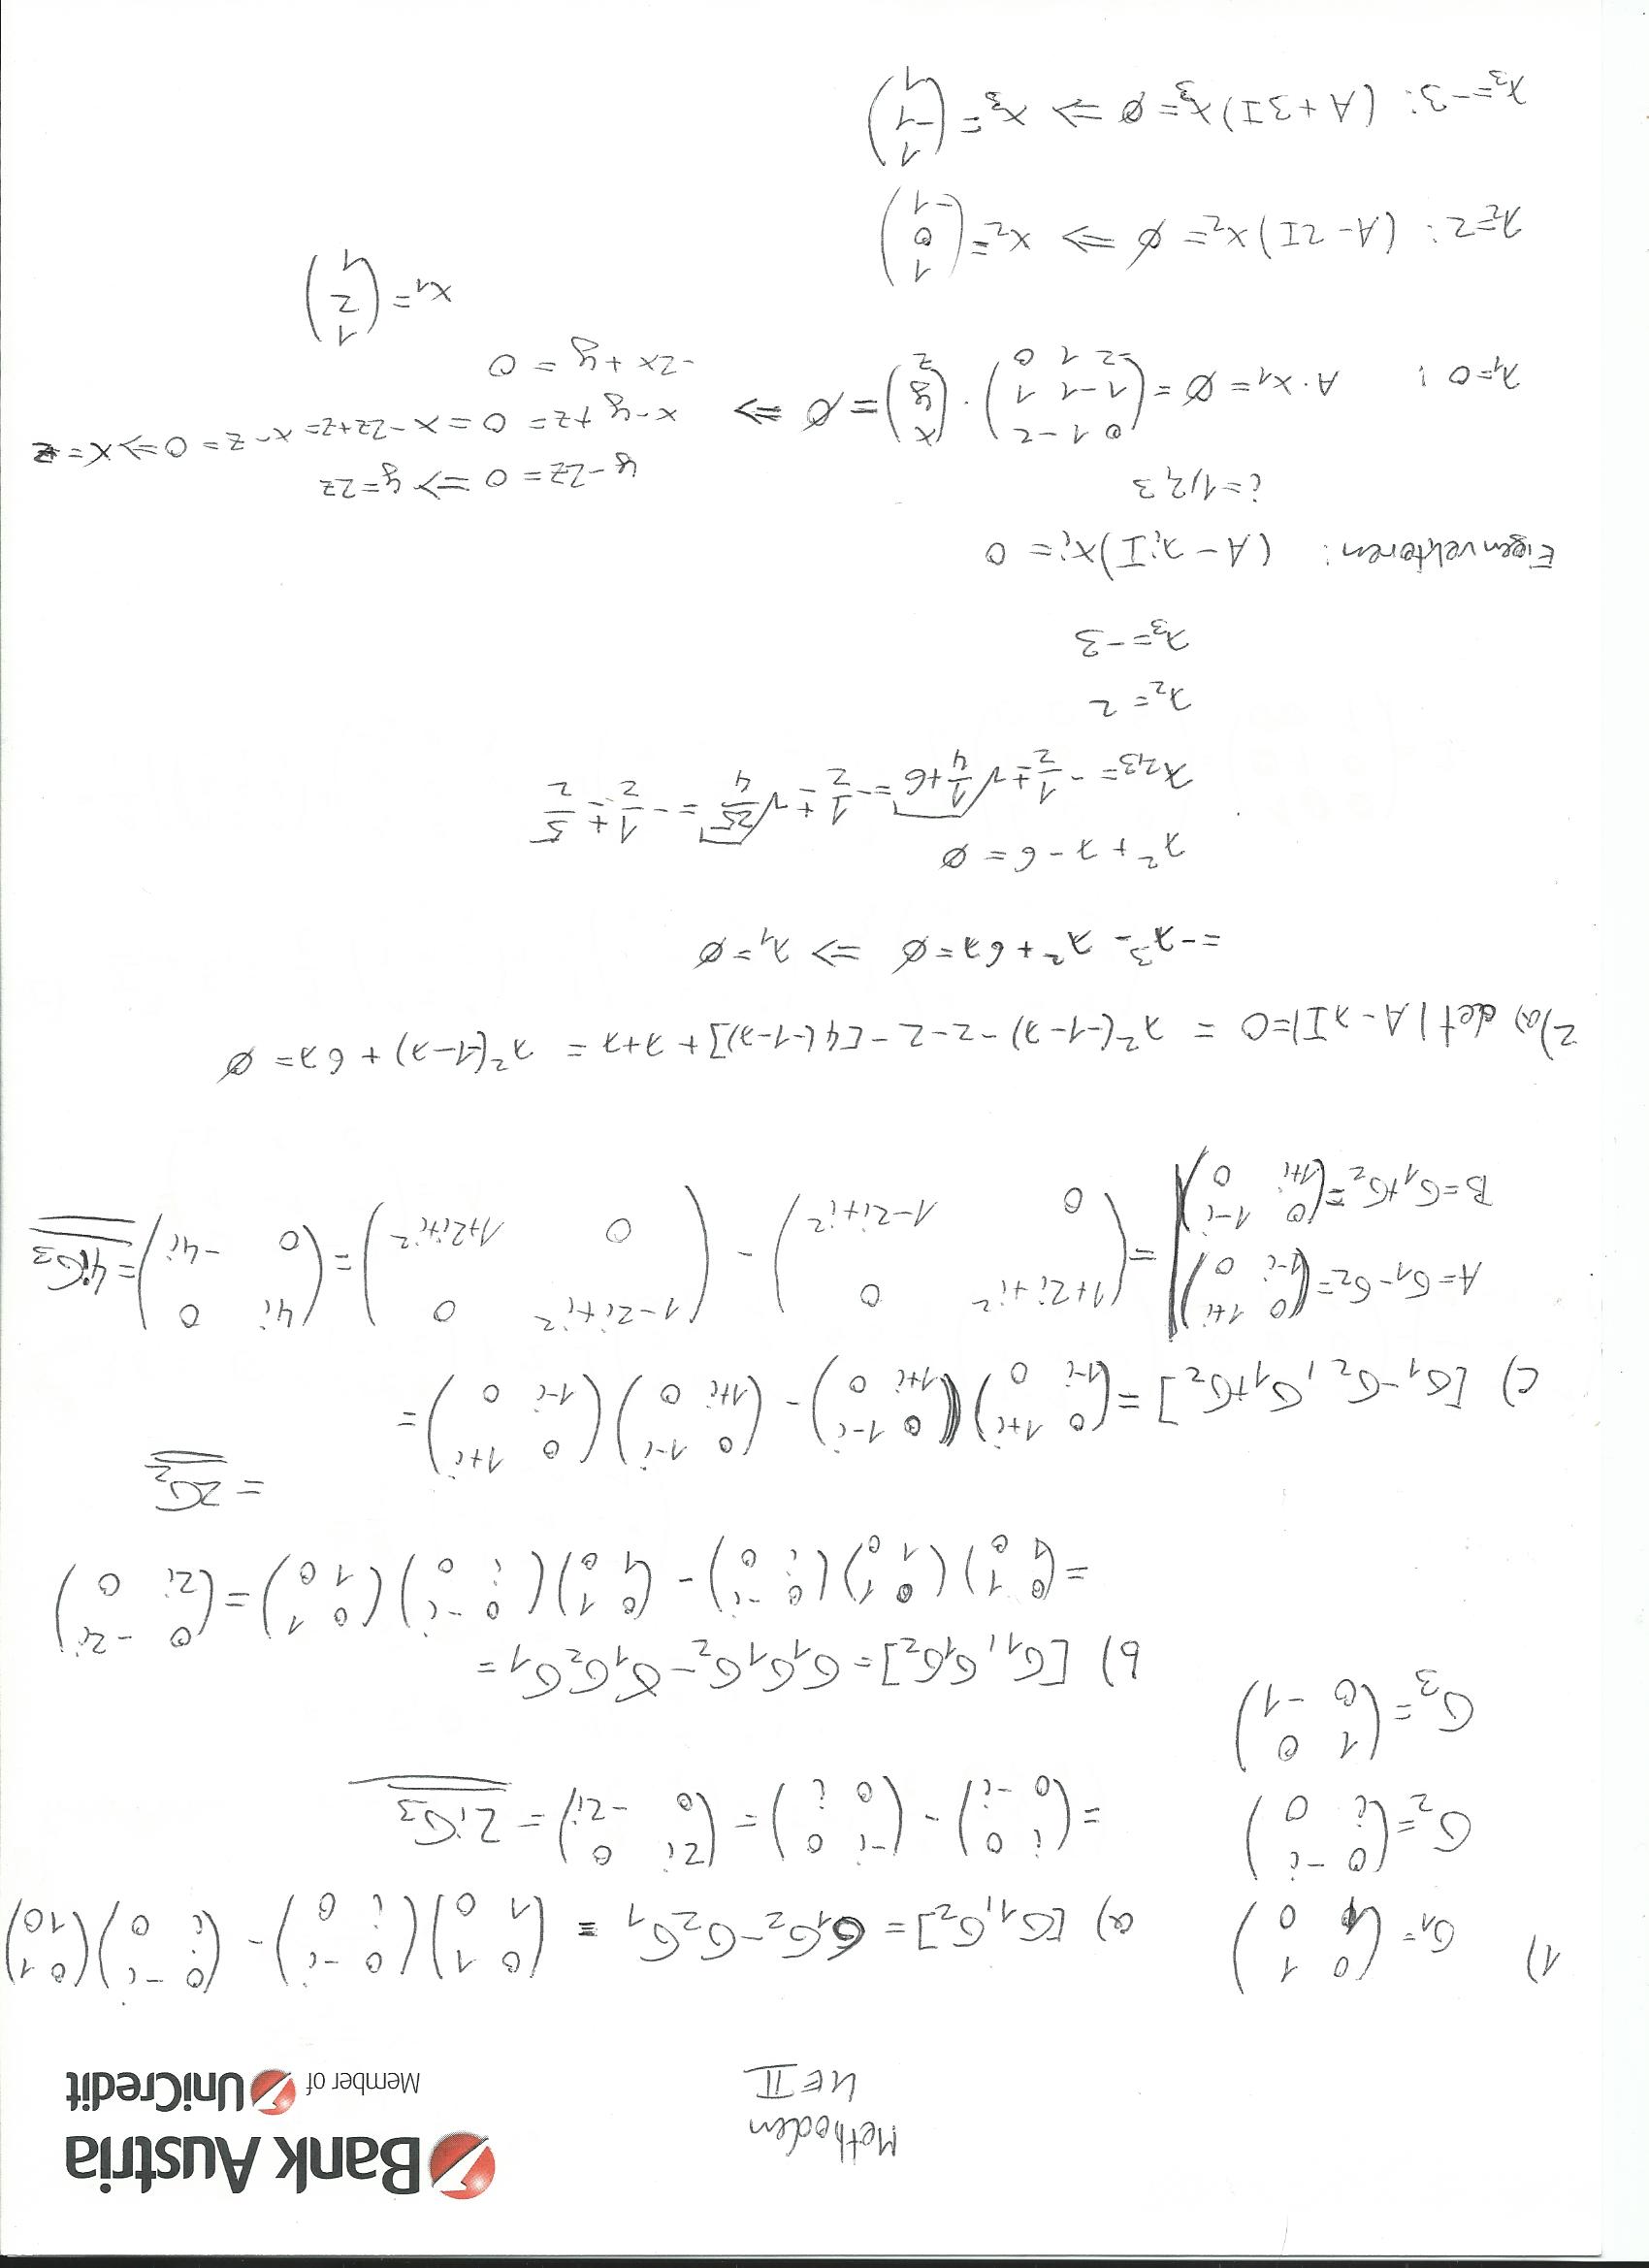 Bank Austria
Member of UniCredit
Methoden
UE II
1) σ₁ = (0 1; 1 0) a) [σ₁, σ₂] = σ₁σ₂ - σ₂σ₁ = (0 1; 1 0)(0 -i; i 0) - (0 -i; i 0)(0 1; 1 0)
σ₂ = (0 -i; i 0) = (i 0; 0 -i) - (-i 0; 0 i) = (2i 0; 0 -2i) = 2iσ₃
σ₃ = (1 0; 0 -1)
b) [σ₁, σ₁σ₂] = σ₁σ₁σ₂ - σ₁σ₂σ₁ =
= (0 1; 1 0)(0 1; 1 0)(0 -i; i 0) - (0 1; 1 0)(0 -i; i 0)(0 1; 1 0) = (0 -2i; 2i 0)
= 2σ₂
c) [σ₁-σ₂, σ₁+σ₂] = (0 1+i; 1-i 0)(0 1-i; 1+i 0) - (0 1-i; 1+i 0)(0 1+i; 1-i 0) =
A = σ₁-σ₂ = (0 1+i; 1-i 0)
B = σ₁+σ₂ = (0 1-i; 1+i 0)
= (1+2i+i² 0; 0 1-2i+i²) - (1-2i+i² 0; 0 1+2i+i²) = (4i 0; 0 -4i) = 4iσ₃
2) a) det |A-λI| = 0 = λ²(-1-λ) -2-2 -[4(-1-λ)] + λ+λ = λ²(-1-λ) + 6λ = 0
= -λ³ - λ² + 6λ = 0 => λ₁ = 0
λ² + λ - 6 = 0
λ₂,₃ = -1/2 ± √(1/4 + 6) = -1/2 ± √(25/4) = -1/2 ± 5/2
λ₂ = 2
λ₃ = -3
Eigenvektoren: (A - λᵢI)xᵢ = 0
i = 1,2,3
λ₁ = 0: A · x₁ = 0 = (0 1 -2; 1 -1 1; -2 1 0) · (x; y; z) = 0 =>
y - 2z = 0 => y = 2z
x - y + z = 0 = x - 2z + z = x - z = 0 => x = z
-2x + y = 0
x₁ = (1; 2; 1)
λ₂ = 2: (A - 2I)x₂ = 0 => x₂ = (1; 0; -1)
λ₃ = -3: (A + 3I)x₃ = 0 => x₃ = (1; -1; 1)